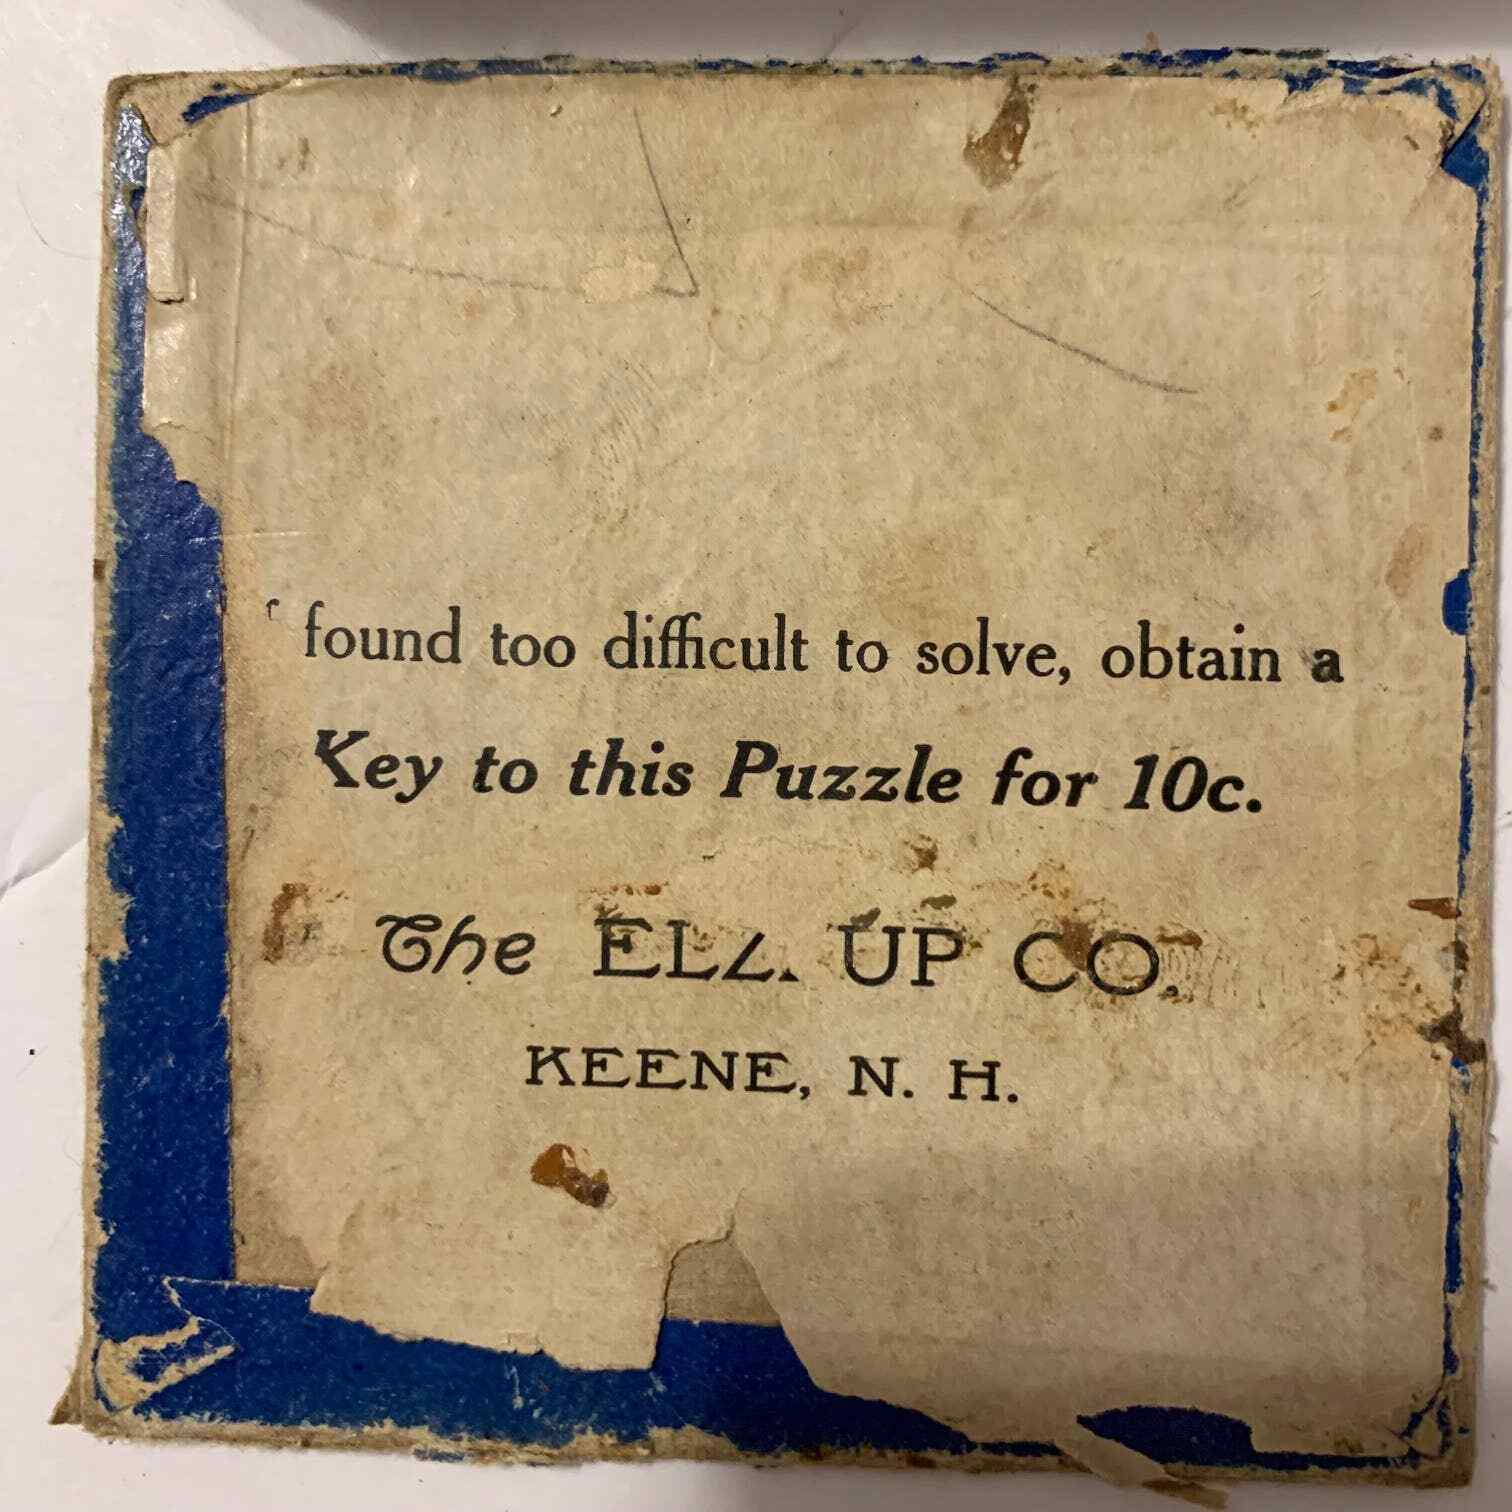 found too difficult to solve, obtain a
Key to this Puzzle for 10c.
The UP CO.
KEENE, N. H.